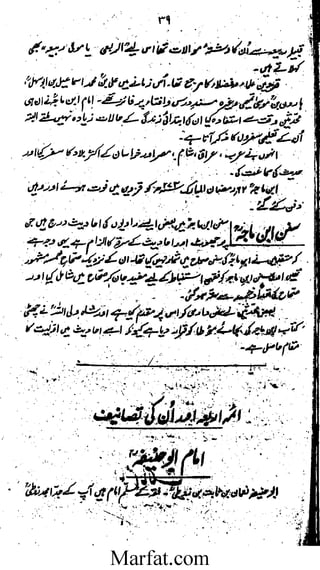 ۳۹
قبیلہ ربیعہ سے ان کا رشتہ موالات تھا اس لیے الربعی یا مولی ربیعہ بھی
کہلاتے ہیں۔
قزوین علماء و فضلاء کا مرجع تھا۔ اس زمانے میں علی بن محمد اسماعیل بن
ہارون بن موسیٰ تمیمی وغیرہ مسند درس و افتاء پر فائز تھے۔ امام ابن ماجہ نے ان ہی
محدثین وقت سے استفادہ کیا ان کی ابتدائی زندگی کے حالات زیادہ نہیں ملتے البتہ
ان کے علمی سفروں کا ذکر آتا ہے۔
انہوں نے عرب، عراق، شام، مصر اور خراسان کے اکثر بلاد کا سفر کیا اور
حدیث کی سماعت کی۔
ابن ماجہ ۲۲ رمضان المبارک ۲۷۳ھ کو قزوین میں فوت ہوئے اور وہیں
دفن کئے گئے۔
سنن ابن ماجہ سنن ابن ماجہ میں بعض ایسے راویوں کی احادیث درج ہیں جن
پر جھوٹ اور احادیث کے سرقہ کا الزام ہے یہی وجہ ہے
کہ متقدمین نے ابن ماجہ کی سنن صحاح میں شمار نہیں کیا تھا۔ ان کے نزدیک صحاح خمسہ مشہور
تھیں سنن ابن ماجہ کو فقہی استنباط کے لیے مفید جان کر صحاح میں شامل کیا اور
صحاح کی تعداد
بعض محدثین نے سنن دارمی کو اس پر مقدم کیا ہے اور شاہ ولی اللہؒ نے چھٹی
کتاب ابن ماجہ کی بجائے موطا کو قرار دیا ہے کیونکہ اسے احادیث میں اولیت کا
مقام حاصل ہے۔
ائمہ اربعہ اور ان کی تصانیف
امام ابو حنیفہؒ
ابو حنیفہ نعمان بن ثابت بن زوطی۔ فقہ کے مسلم امام ہیں آپ کے جد امجد زوطی
Marfat.com